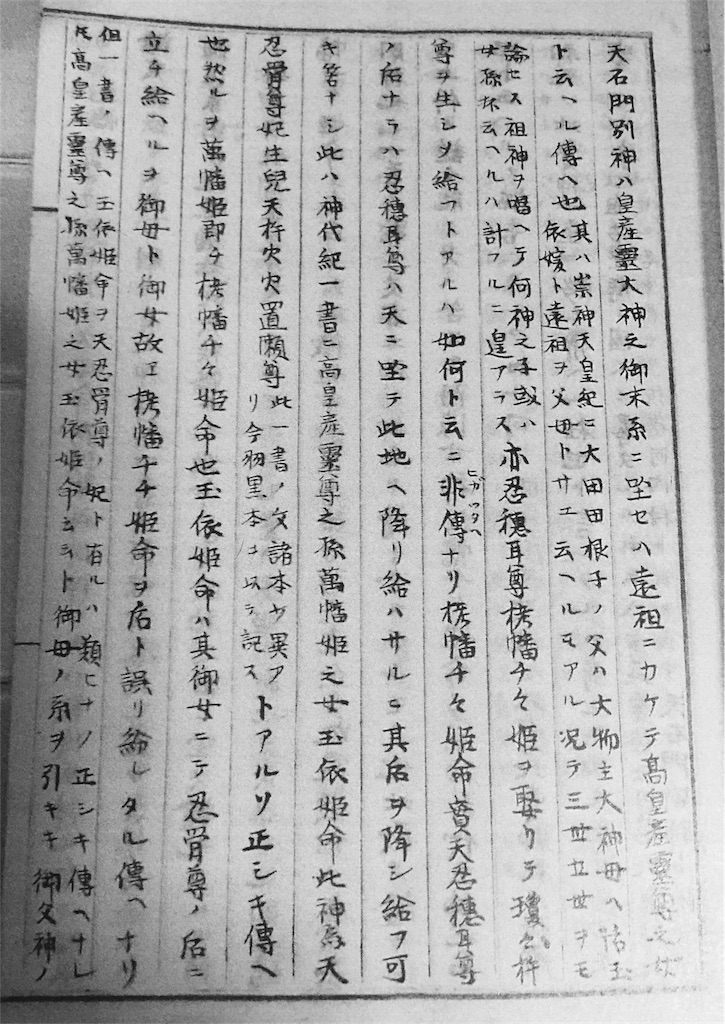 天石門別神ハ皇産靈大神之御末系ニ坐セハ遠祖ニカケテ高皇産靈尊之
ト云ヘル傳ヘ也
其ハ崇神天皇紀ニ大田田根子ノ父ハ大物主大神母ハ活玉
依媛ト遠祖ヲ父母トサエ云ヘルモアル况テ三世五世ヲモ
論セス祖神ヲ唱ヘテ何神之子或ハ
女孫抔云ヘルハ計フルニ遑アラス
亦忍穗耳尊栲幡千々姫ヲ娶リテ瓊々杵
尊ヲ生シヲ給フトアルハ如何ト云ニ非傳ナリ栲幡千々姫命實天忍穗耳尊
ヒガツタヘ
ノ后ナラハ忍穗耳尊ハ天ニ坐テ此地ヘ降リ給ハサルニ其后ヲ降シ給フ可
キ筈ナシ此ハ神代紀一書ニ高皇産靈尊之孫萬幡姫之女玉依姫命此神為天
忍骨尊妃生兒天杵火火置瀬尊
此一書ノ文諸本ヤ異ア
リ今羽黒本ニ以テ記ス
トアルソ正シキ傳ヘ
也然ルヲ萬幡姫即チ栲幡千々姫命也玉依姫命ハ其御女ニテ忍骨尊ノ后ニ
立チ給ヘルヲ御母ト御女故ニ栲幡千千姫命ヲ后ト誤リ紛レタル傳ヘナリ
但一書ノ傳ヘ玉依姫命ヲ天忍骨尊ノ妃ト有ルハ類ヒナノ正シキ傳ヘナレ
𪜈高皇産靈尊之孫萬幡姫之女玉依姫命云云ト御母ノ系ヲ引キキ御父神ノ